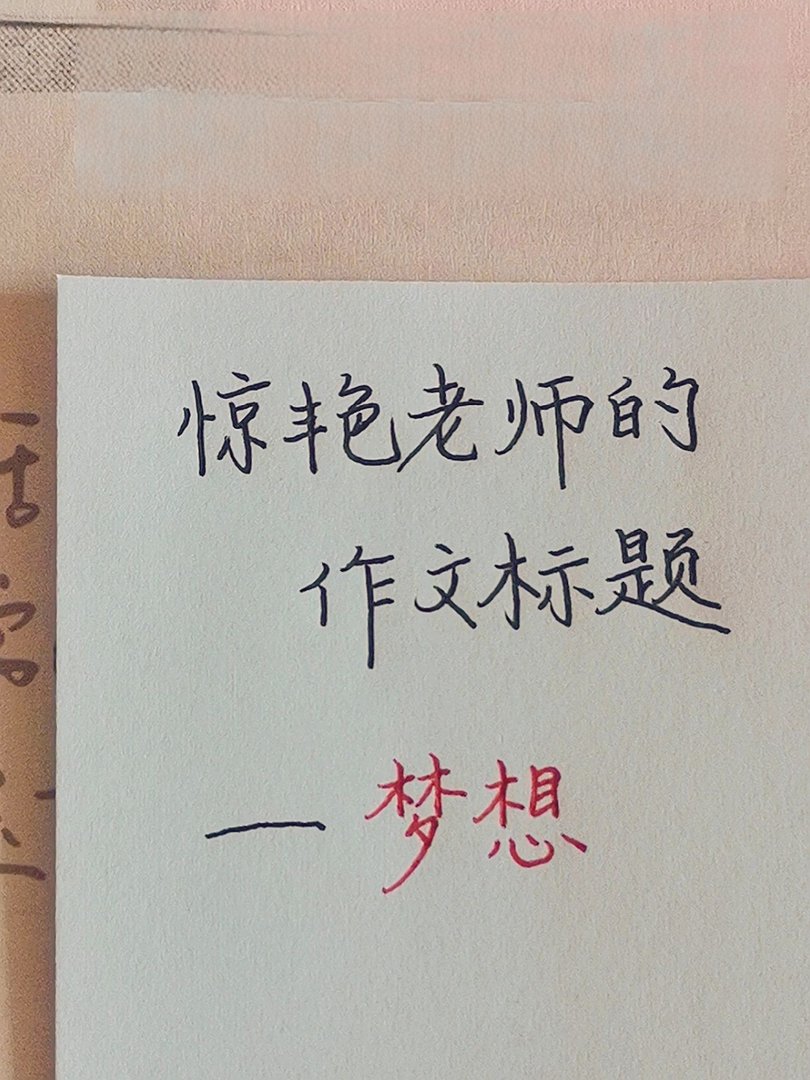 惊艳老师的
作文标题
—梦想